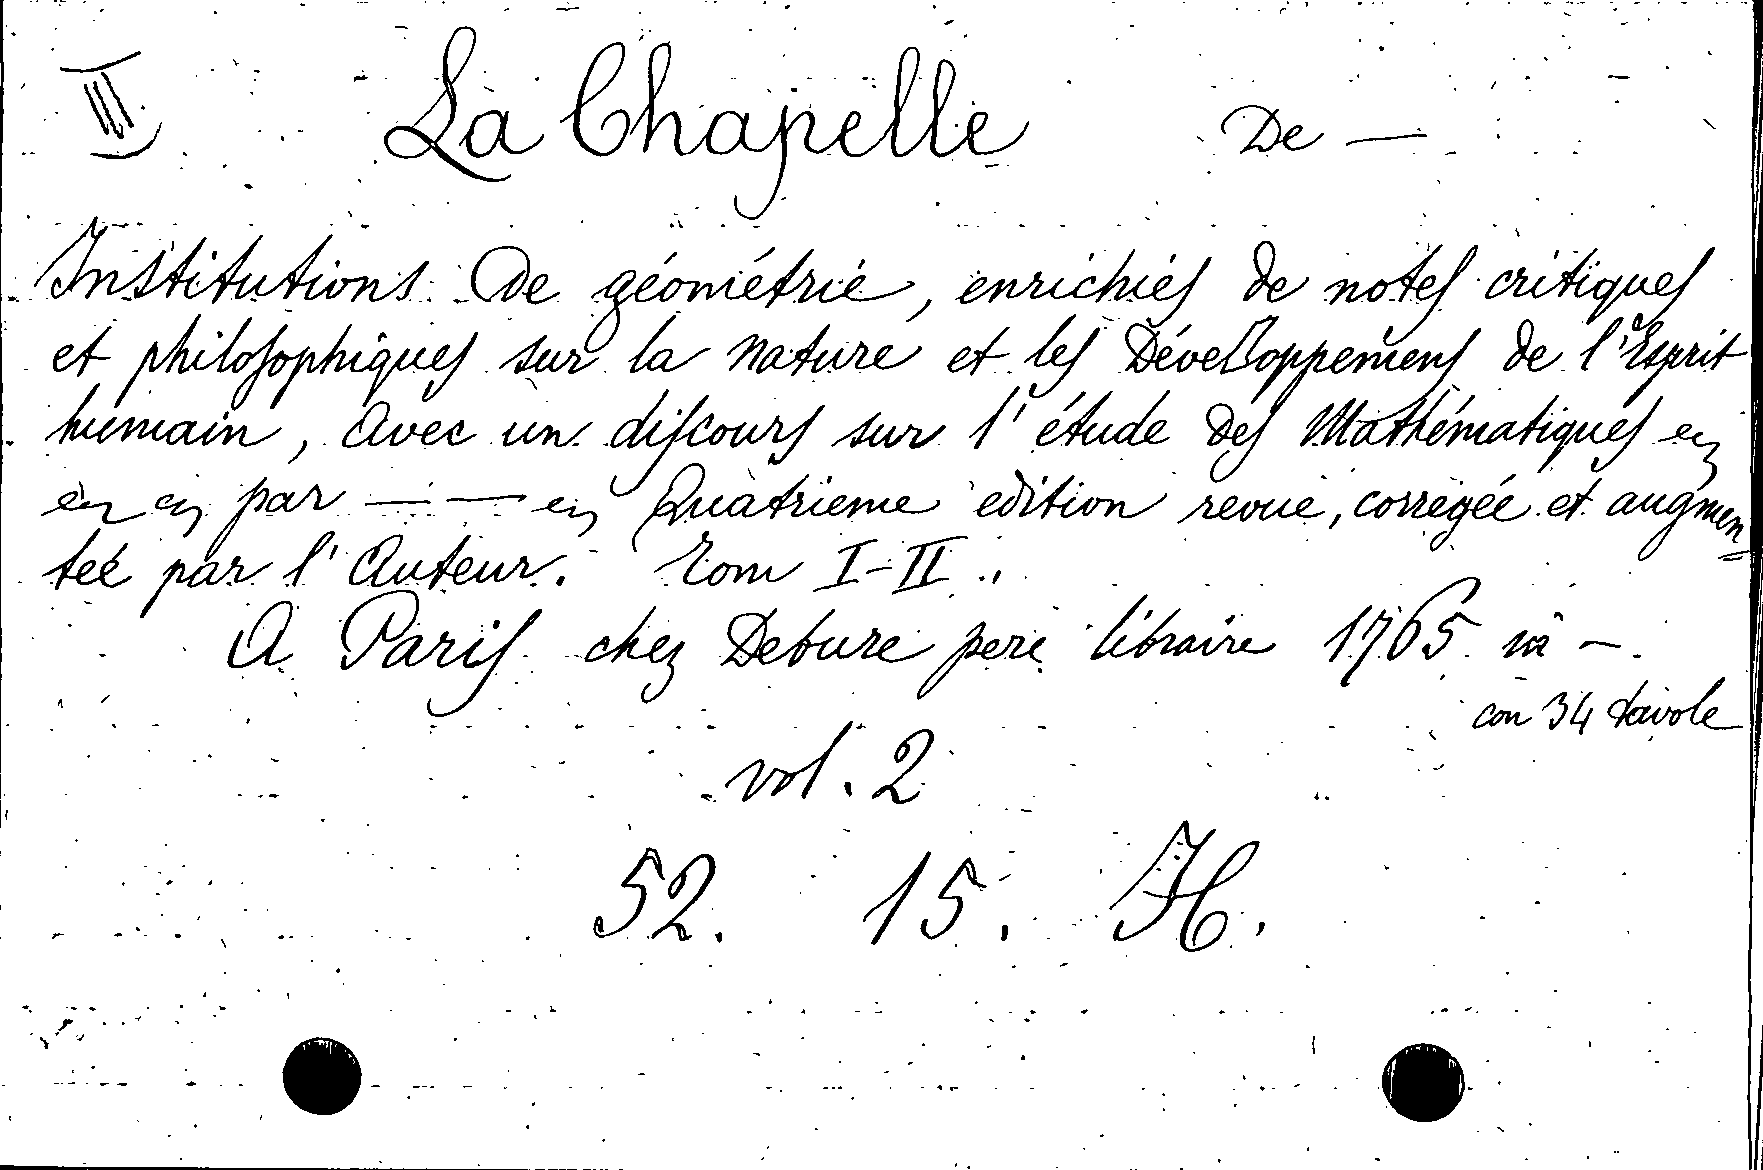 III La Chapelle De —
Institutions De géométrie, enrichies de notes critiques
et philosophiques sur la nature et les Développemens de l'Esprit
humain, avec un discours sur l'étude des Mathématiques
par — — Quatrieme edition revue, corrigée et augmen=
teé par l'Auteur. Tom I-II.
A Paris chez Debure pere libraire 1765 in –
con 34 tavole
vol. 2
52. 15. H.